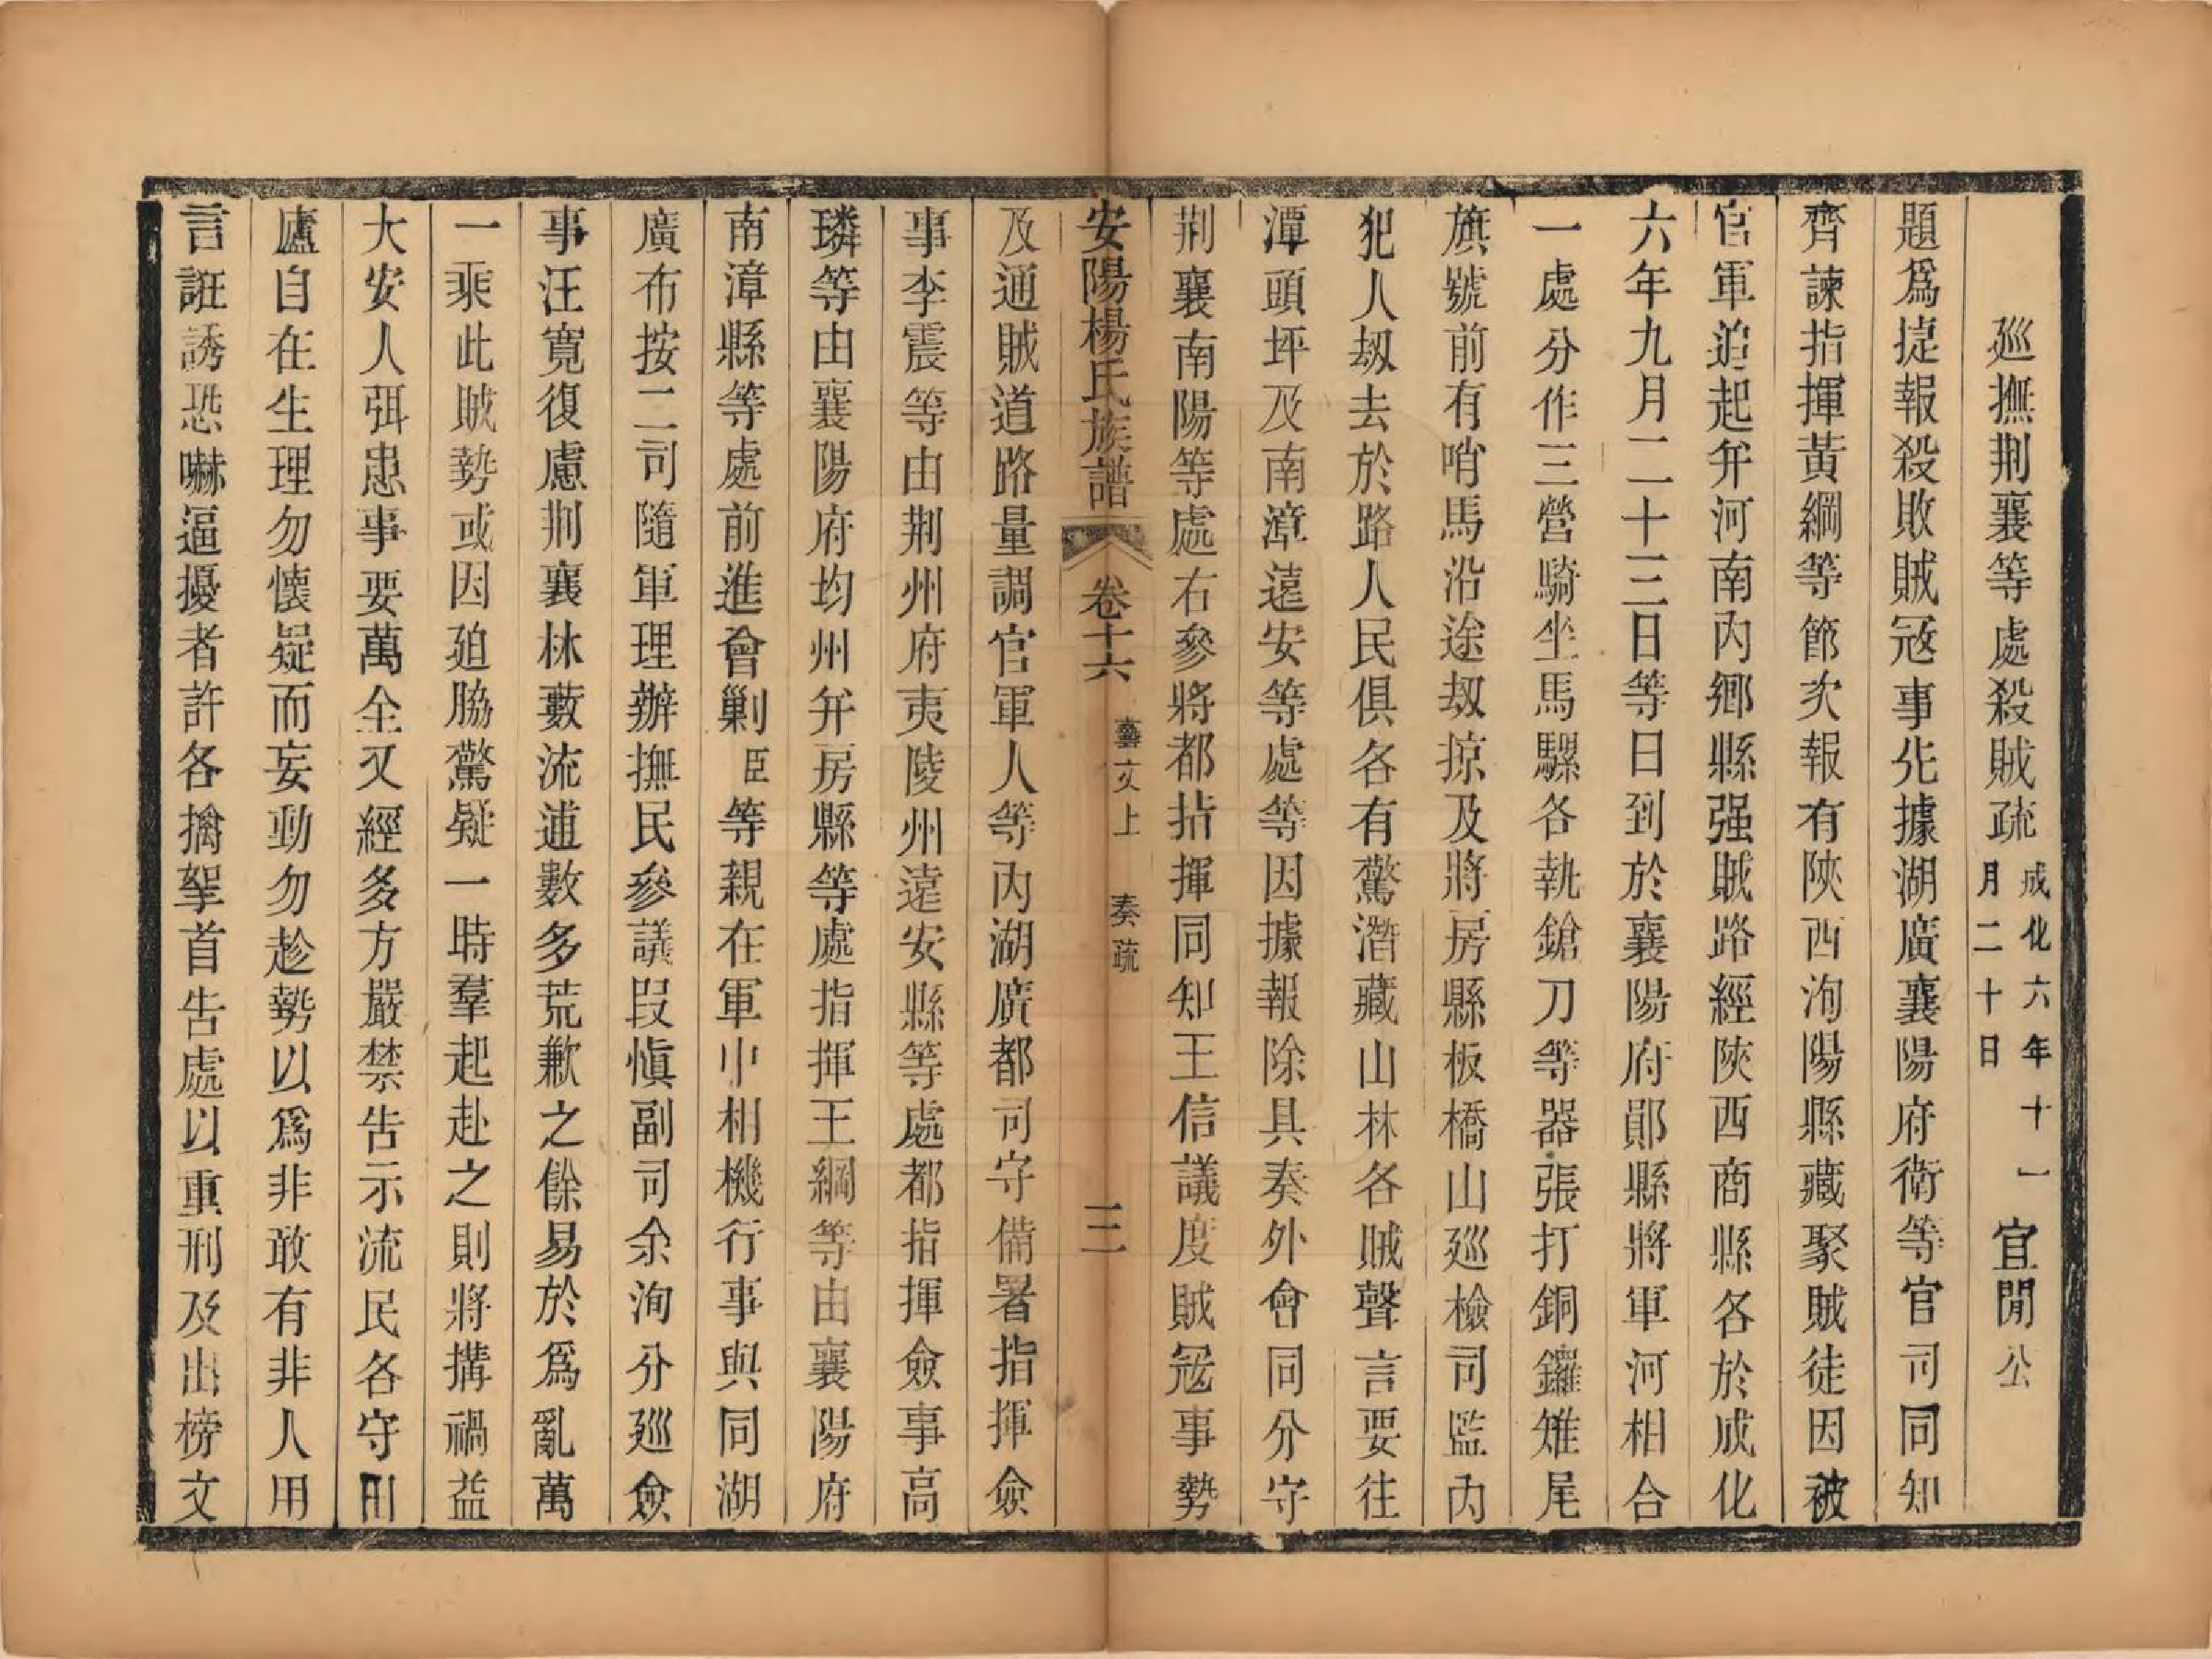 巡撫荆襄等處殺賊疏成化六年十一月二十日 宜閒公
題爲捷報殺敗賊冦事先據湖廣襄陽府衛等官司同知
齊諫指揮黃綱等節次報有陝西洵陽縣藏聚賊徒因被
官軍追起并河南内鄉縣强賊路經陝西商縣各於成化
六年九月二十三日等日到於襄陽府鄖縣將軍河相合
一處分作三營騎坐馬騾各執鎗刀等器張打銅鑼雉尾
旗號前有哨馬沿途刼掠及將房縣板橋山廵檢司監内
犯人刼去於路人民俱各有驚潛藏山林各賊聲言要往
潭頭坪及南漳遠安等處等因據報除具奏外會同分守
荆襄南陽等處右參將都指揮同知王信議度賊冦事勢
安陽楊氏族譜 卷十六 藝文上 奏疏 三
及通賊道路量調官軍人等内湖廣都司守備署指揮僉
事李震等由荆州府夷陵州遠安縣等處都指揮僉事高
璘等由襄陽府均州并房縣等處指揮王綱等由襄陽府
南漳縣等處前進會剿臣等親在軍中相機行事與同湖
廣布按二司隨軍理辦撫民參議段愼副司余洵分廵僉
事汪寬復慮荆襄林藪流逋數多荒歉之餘易於爲亂萬
一乘此賊勢或因廹脇驚疑一時羣起赴之則將搆禍益
大安人弭患事要萬全又經多方嚴禁告示流民各守田
廬自在生理勿懷疑而妄動勿趁勢以爲非敢有非人用
言誑誘恐嚇逼擾者許各擒拏首告處以重刑及出榜文